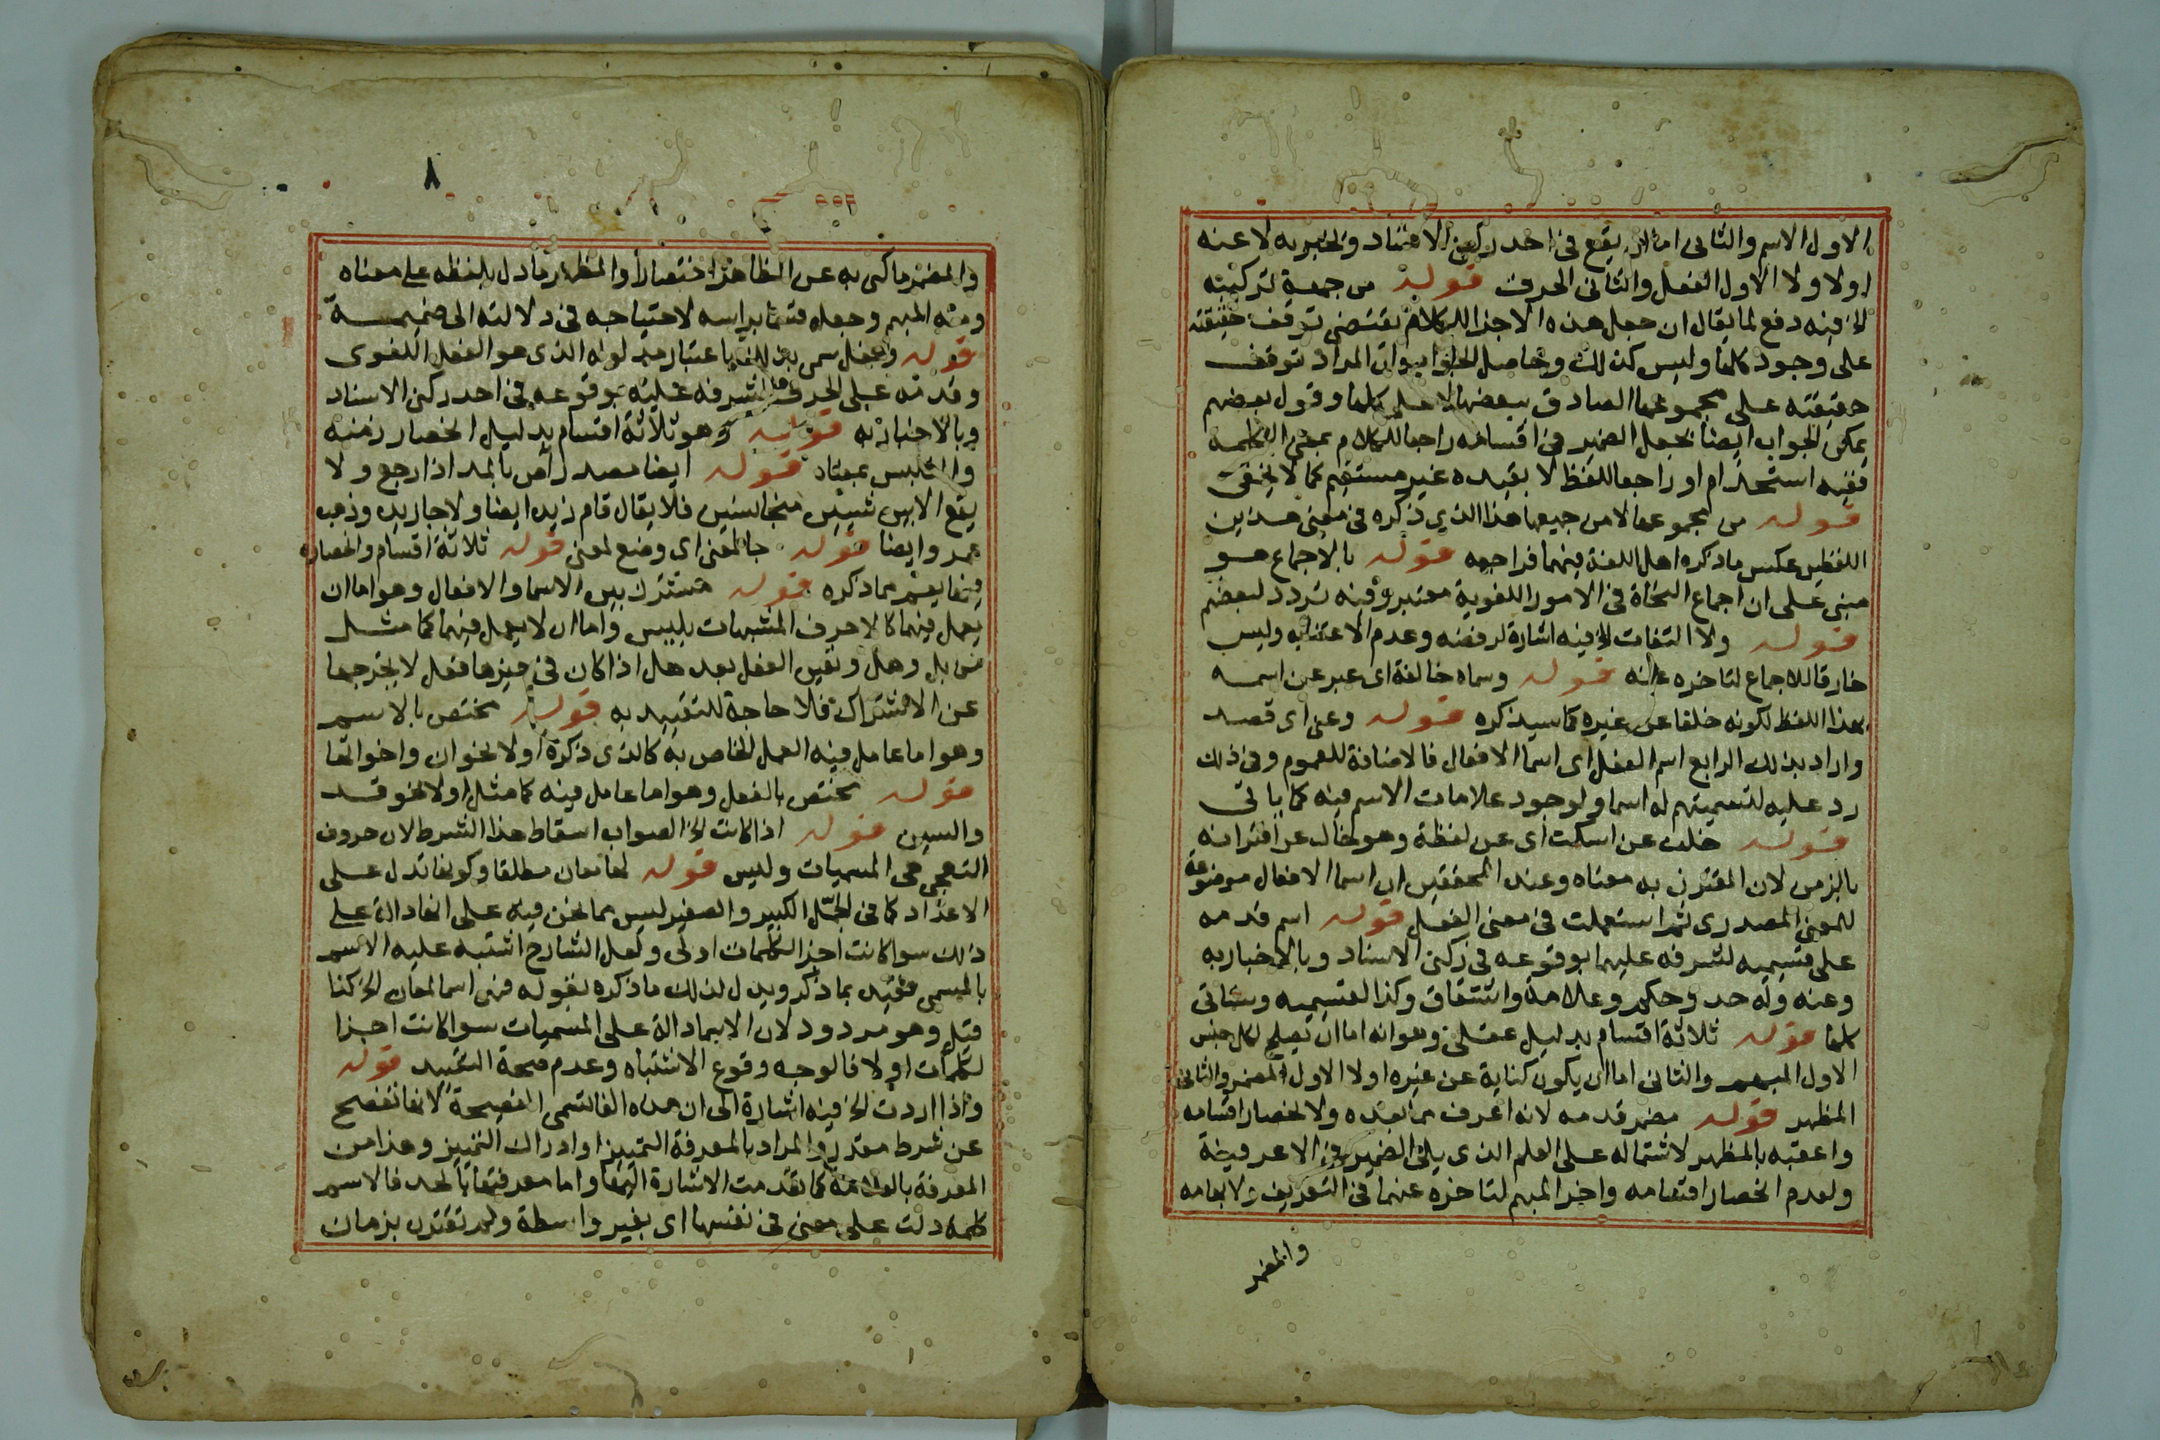 الاول الاسم والثانى اما ان يقع فى احد ركنى الاسناد ويخبر به لا عنه
اولا ولا الاول الفعل والثانى الحرف قوله من جهة تركيبه
الخ فيه دفع لما يقال ان جعل هذه الاجزا للكلام يقتضى توقف حقيقته
على وجود كلها وليس كذلك وحاصل الجواب ان المراد توقف
حقيقته على مجموعها الصادق ببعضها لا على كلها وقول بعضهم
يمكن الجواب ايضا بجعل الضمير فى اقسامه راجعا للكلام بمعنى الكلمة
ففيه استخدام او راجعا للفظ لا بقيده غير مستقيم كما لا يخفى
قوله من مجموعها لا من جميعها هذا الذى ذكره فى معنى هذين
اللفظين عكس ما ذكره اهل اللغة فيهما فراجعه قوله بالاجماع هو
مبنى على ان اجماع النحاة فى الامور اللغوية معتبر وفيه تردد لبعضهم
قوله ولا التفات الخ فيه اشارة لرفضه وعدم الاعتناء به وليس
خارقا للاجماع لتاخره عنه قوله وسماه خالفة اى عبر عن اسمه
بهذا اللفظ لكونه خلفا عن غيره كما سيذكره قوله وعنى اى قصد
واراد بذلك الرابع اسم الفعل اى اسما الافعال فالاضافة للعموم وفى ذلك
رد عليه لتسميتهم له اسما ولوجود علامات الاسم فيه كما ياتى
قوله خلف عن اسكت اى عن لفظه وهو خال عن اقترانه
بالزمن لان المقترن به معناه وعند المحققين ان اسما الافعال موضوعة
للمعنى المصدرى ثم استعملت فى معنى الفعل قوله اسم قدمه
على قسيميه لشرفه عليهما بوقوعه فى ركنى الاسناد وبالاخبار به
وعنه وله حد وحكم وعلامة واشتقاق وكذا لقسيميه وستاتى
كلها قوله ثلاثة اقسام بدليل عقلى وهو انه اما ان يصلح لكل جنس
الاول المبهم والثانى اما ان يكون كناية عن غيره اولا الاول المضمر والثانى
المظهر قوله مضمر قدمه لانه اعرف مما بعده ولانحصار اقسامه
واعقبه بالمظهر لاشتماله على العلم الذى يلى الضمير فى الاعرفية
ولعدم انحصار اقسامه واخر المبهم لتاخره عنهما فى التعريف ولابهامه
والمضمر
٨
والمضمر ما كنى به عن الظاهر اختصارا والمظهر ما دل بلفظه على معناه
ومنه المبهم وجعله قسما براسه لاحتياجه فى دلالته الى ضميمة
قوله وفعل سمى بذلك باعتبار مدلوله الذى هو الفعل اللغوى
وقدمه على الحرف لشرفه عليه بوقوعه فى احد ركنى الاسناد
وبالاخبار به قوله وهو ثلاثة اقسام بدليل انحصار زمنه
والتلبس بمعناه قوله ايضا مصدر آض بالمد اذا رجع ولا
يقع الا بين شيئين متجانسين فلا يقال قام زيد ايضا ولا جا زيد وذهب
عمرو ايضا قوله جا لمعنى اى وضع لمعنى قوله ثلاثة اقسام وانحصاره
فيها يعلم مما ذكره قوله مشترك بين الاسما والافعال وهو اما ان
يعمل فيهما كالاحرف المشبهات بليس واما ان لا يعمل فيهما كما مثل
من بل وهل وتعين الفعل بعد هل اذا كان فى حيزها فعل لا يخرجها
عن الاشتراك فلا حاجة للتقييد به قوله مختص بالاسم
وهو اما عامل فيه العمل الخاص به كالذى ذكره اولا نحو ان واخواتها
قوله مختص بالفعل وهو اما عامل فيه كما مثل اولا نحو قد
والسين قوله اذا كانت الخ الصواب اسقاط هذا الشرط لان حروف
التهجى هى المسميات وليس قوله لها معان مطلقا وكونها تدل على
الاعداد كما فى الجمل الكبير والصغير ليس مما نحن فيه على انها دالة على
ذلك سوا كانت اجزا الكلمات او لا ولعل الشارح اشتبه عليه الاسم
بالمسمى فقيد بما ذكر ويدل لذلك ما ذكره بقوله فهى اسما لمعان الخ كذا
قيل وهو مردود لان الاسما دالة على المسميات سوا كانت اجزا
لكلمات اولا فالوجه وقوع الاشتباه وعدم صحة التقييد قوله
واذا اردت الخ فيه اشارة الى ان هذه الفا تسمى الفصيحة لانها تفصح
عن شرط مقدر والمراد بالمعرفة التمييز او ادراك التمييز وهذا من
المعرفة بالعلامة كما تقدمت الاشارة اليها واما معرفتها بالحد فالاسم
كلمة دلت على معنى فى نفسها اى بغير واسطة ولم تقترن بزمان